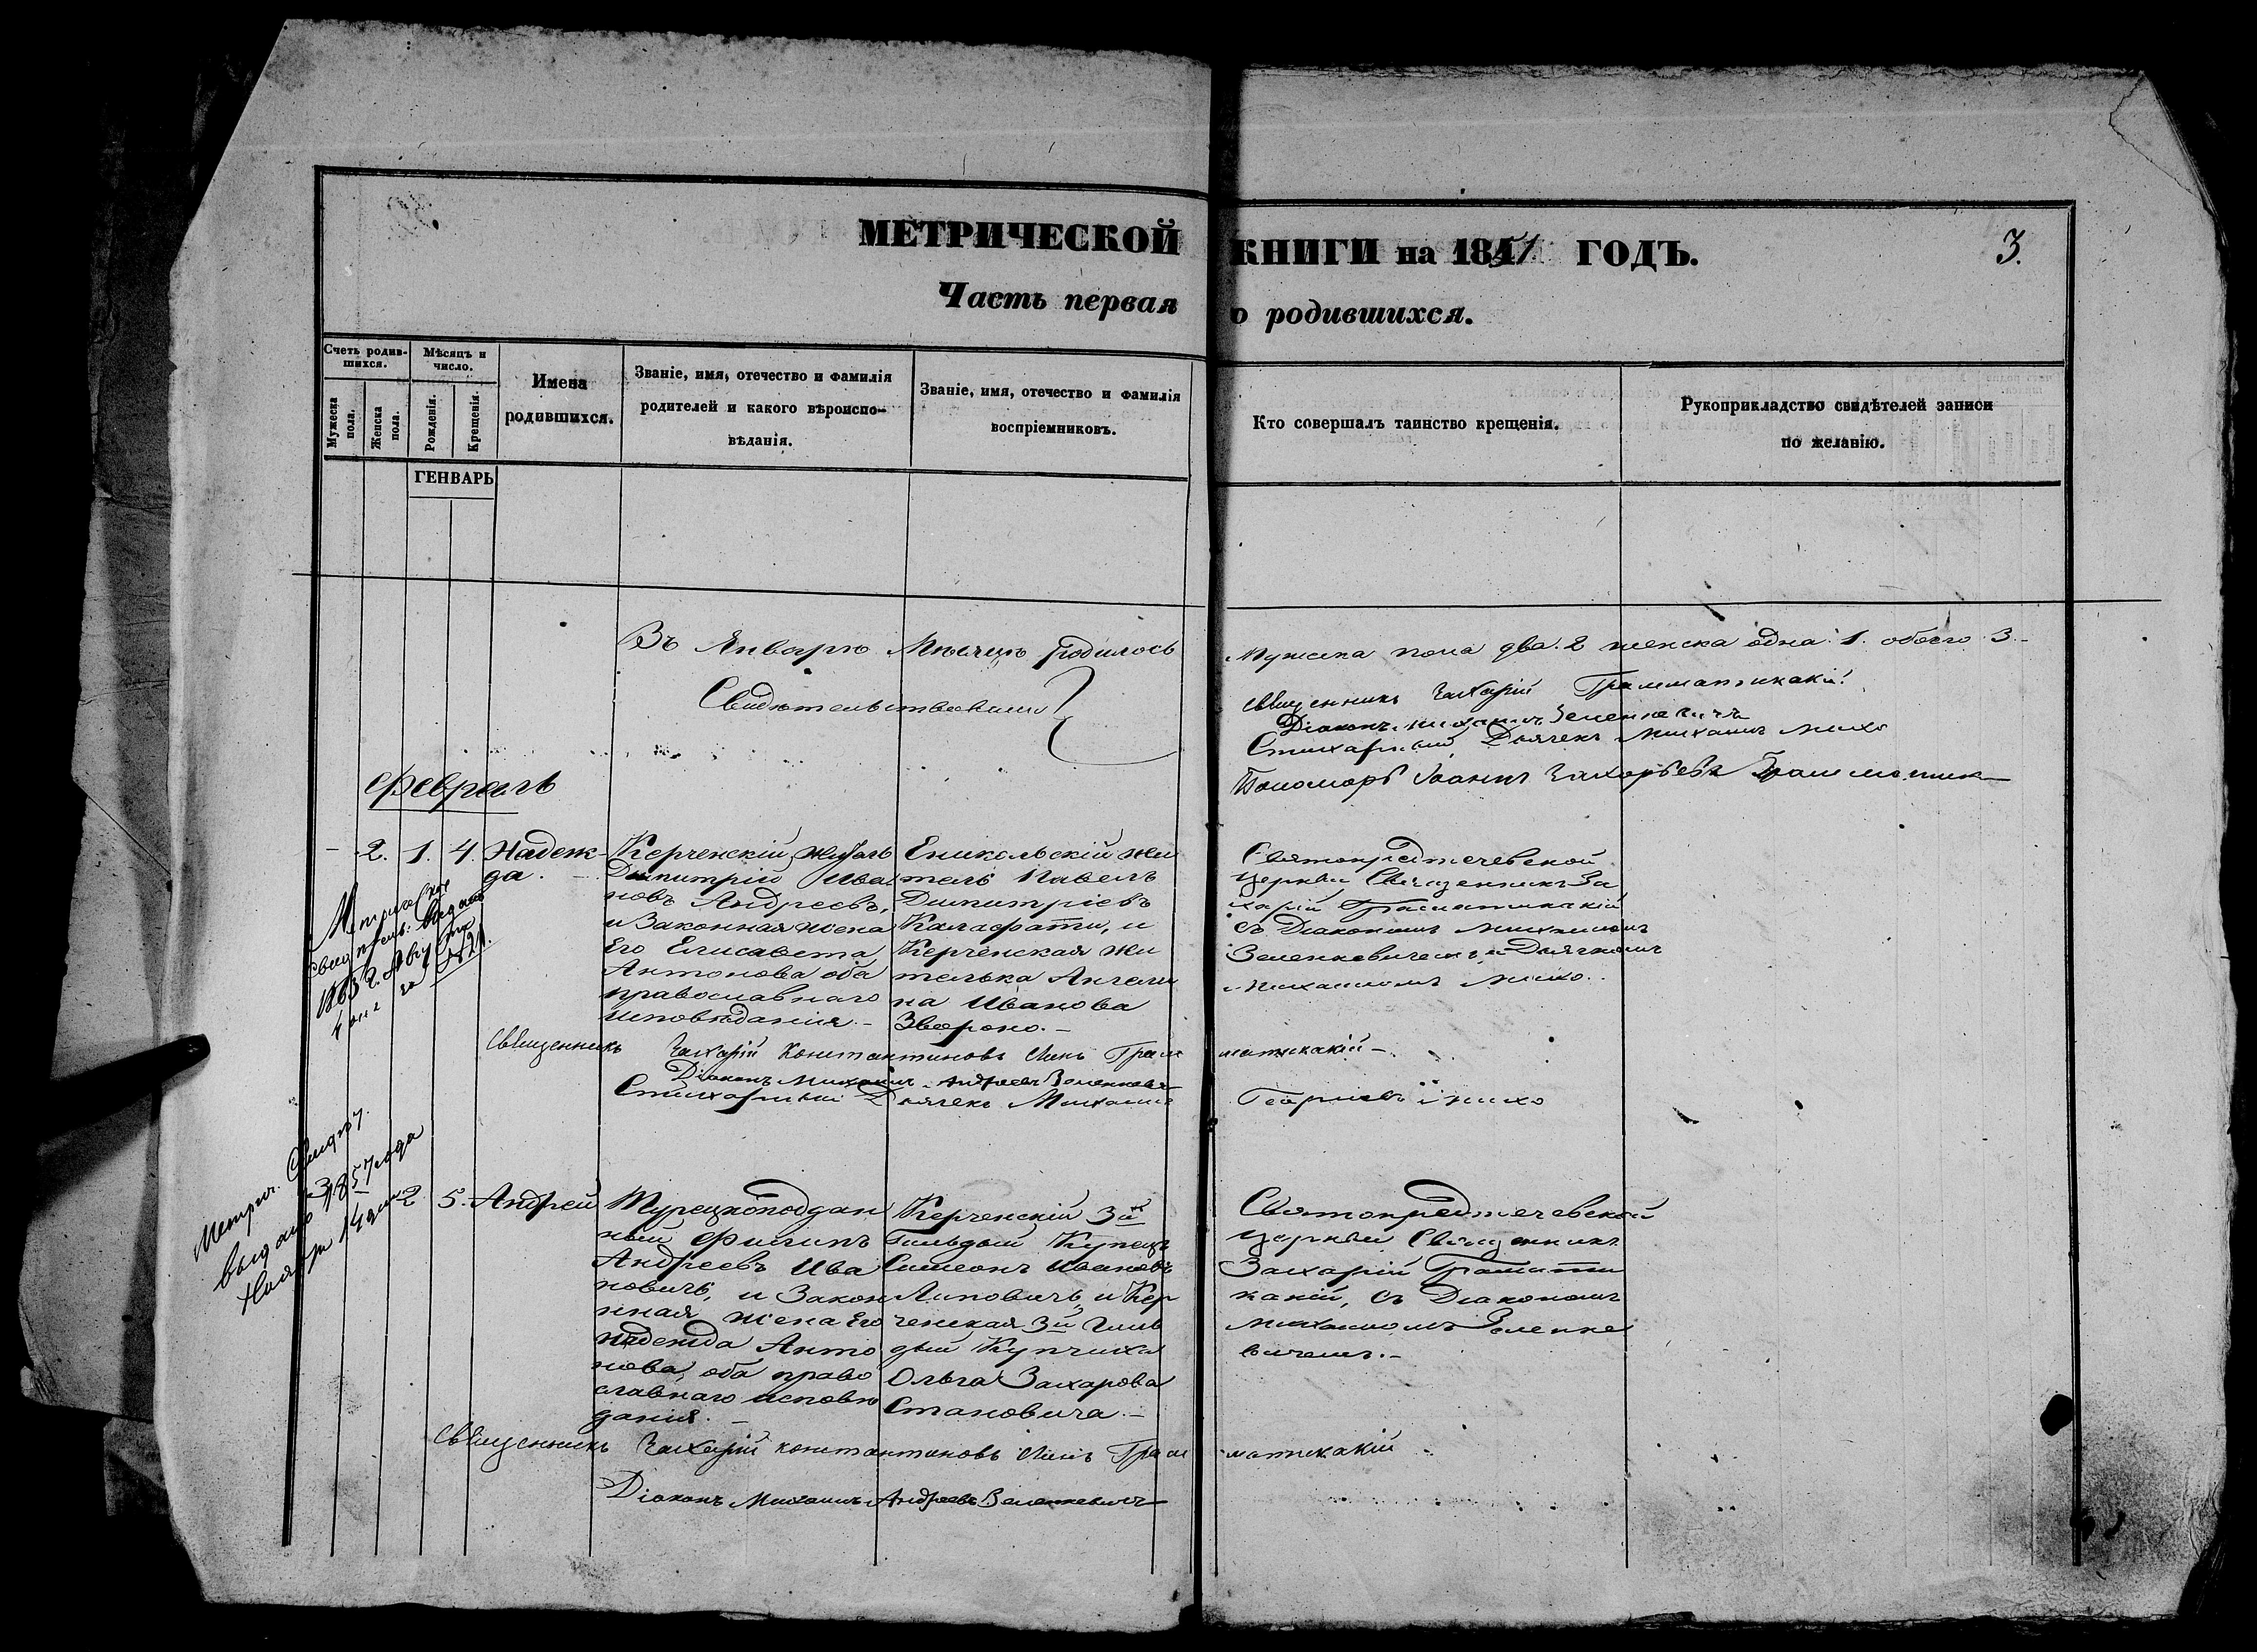 МЕТРИЧЕСКОЙ КНИГИ на 1851 ГОДЪ.
3.
Часть первая о родившихся.
Счетъ родив-
шихся.
Мужеска
пола.
Женска
пола.
Мѣсяцъ и
число.
Рожденія.
Крещенія.
Имена
родившихся.
Званіе, имя, отечество и фамилія
родителей и какого вѣроиспо-
вѣданія.
Званіе, имя, отечество и фамилія
воспріемниковъ.
Кто совершалъ таинство крещенія.
Рукоприкладство свидѣтелей записи
по желанію.
ГЕНВАРЬ
Въ Январѣ Мѣсяцѣ родилось Мужеска пола два. 2 женска одна. 1. обоего 3.
Свидѣтельствовали
священникъ Захарій Грамматикакій
Діаконъ Михаилъ Зеленкевичъ
Стихарный Дьячекъ Михаилъ Михо
Пономарь Іоаннъ Захарьевъ
февраль
2. 1. 4. Надеж-
да.
Керченскій житель
Димитрій Ива
новъ Андреевъ,
и Законная жена
Его Елисавета
Антонова оба
православнаго
исповѣданія.
Еникольскій жи
тель Павелъ
Димитріевъ
Калафати, и
Керченская жи
телька Ангели
на Иванова
Звороно.
Святопредтечевской
церкви Священникъ За
харій Граматикакій
съ Діакономъ Михаиломъ
Зеленкевичемъ, и Дьячкомъ
Михаиломъ Михо.
свид
1863 г. Августа
священникъ Захарій Константиновъ сынъ Грам матикакій
Діаконъ Михаилъ Андреевъ Зеленкевичъ
Стихарный Дьячекъ Михаилъ Георгіевъ Михо
Метрич. Свидѣт.
выдано 1857 года
Ноября 14 дня
3. 2 5. Андрей
Турецкоподдан
ный Филипъ
Андреевъ Ива
новичъ, и Закон
нная жена Его
Надежда Анто
нова, оба право
славнаго исповѣ
данія.
Керченскій 3й
Гильдыи Купецъ
Симеонъ Ивановъ
Липовичъ, и Кер
ченская 3й Гиль
дыи Купчиха
Ольга Захарова
Становича.
Святопредтечевской
церкви Священникъ
Захарій Грамати
какій, съ Діакономъ
Михаиломъ Зеленке
вичемъ.
священникъ Захарій константиновъ сынъ Грам матикакій
Діаконъ Михаилъ Андреевъ Зеленкевичъ